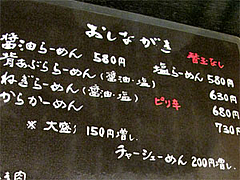 おしながき
替玉なし
醤油らーめん 580円 塩らーめん 580円
背あぶららーめん(醤油・塩) 630円
ねぎらーめん(醤油・塩) 680円
からかーめん ピリ辛 730円
※ 大盛り 150円増し、
チャーシューめん 200円増し、
肉